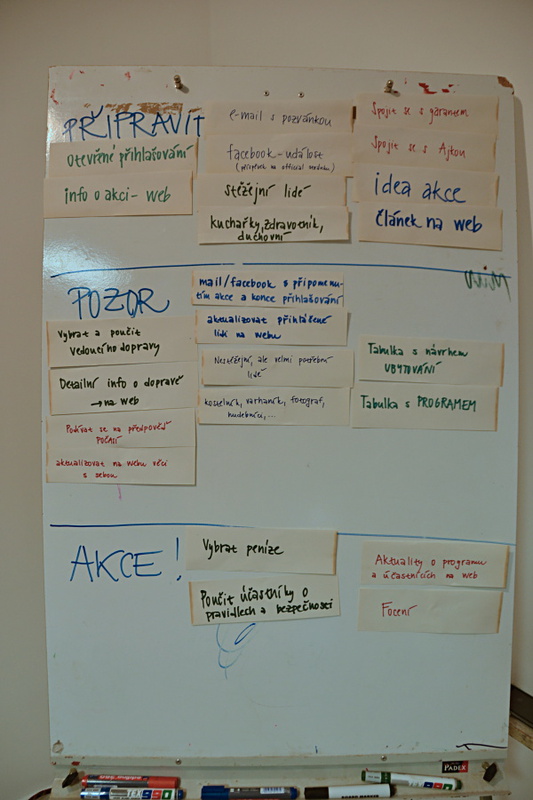 PŘIPRAVIT
otevřené přihlašování
info o akci - web
e-mail s pozvánkou
facebook - událost
stěžejní lidé
kuchařky, zdravotník,
duchovní
Spojit se s garantem
Spojit se s Ajkou
idea akce
článek na web
POZOR
Vybrat a poučit
vedoucího dopravy
Detailní info o dopravě
→ na web
Podívat se na předpověď
počasí
aktualizovat na webu věci
s sebou
mail/facebook s připomenu-
tím akce a konce přihlašování
aktualizovat přihlášené
lidi na webu
Nestěžejní, ale velmi potřební
lidé
kostelník, varhaník, fotograf,
hudebníci, ...
Tabulka s návrhem
UBYTOVÁNÍ
Tabulka s PROGRAMEM
AKCE!
Vybrat peníze
Poučit účastníky o
pravidlech a bezpečnosti
Aktuality o programu
a účastnících na web
Focení
PADEX